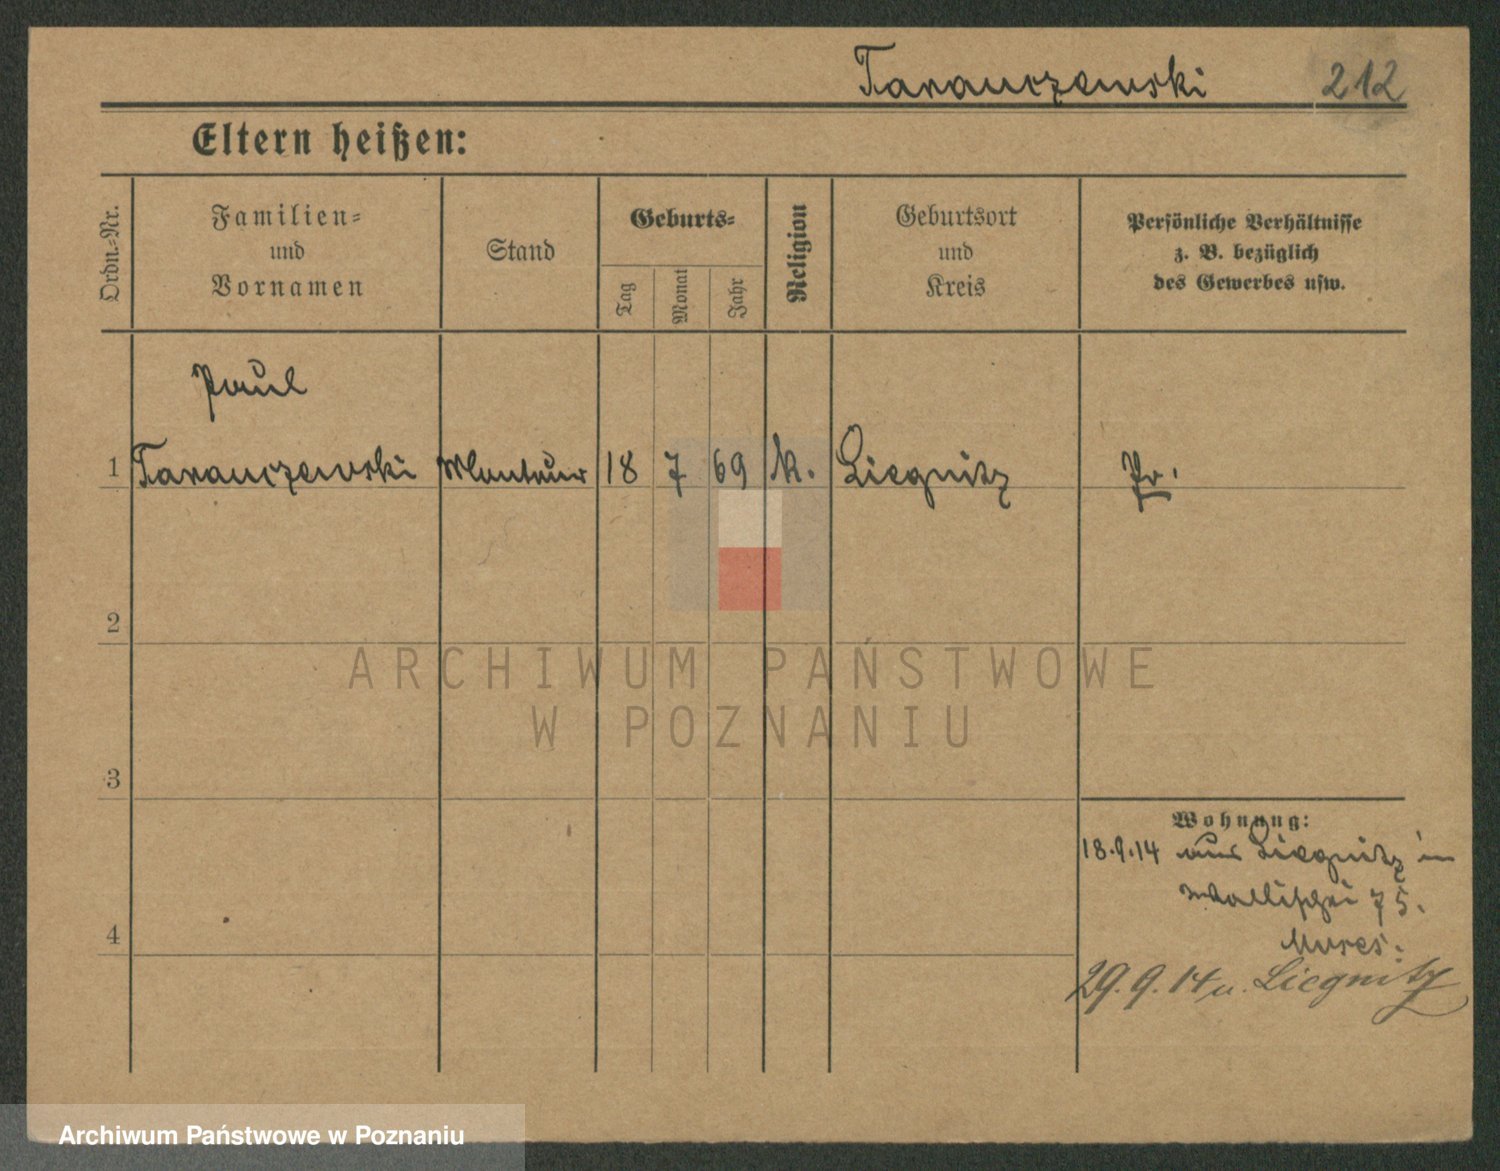 Taranczewski 212
Eltern heißen:
Ordn.-Nr.
Familien-
und
Vornamen
Stand
Geburts-
Tag
Monat
Jahr
Religion
Geburtsort
und
Kreis
Persönliche Verhältnisse
z. B. bezüglich
des Gewerbes usw.
Paul
1 Taranczewski Monteur 18 7 69 k. Liegnitz Pr.
2
ARCHIWUM PAŃSTWOWE
W POZNANIU
3
Wohnung:
18.9.14 aus Liegnitz in
Wallischei 75.
4
29.9.14 n. Liegnitz
Archiwum Państwowe w Poznaniu